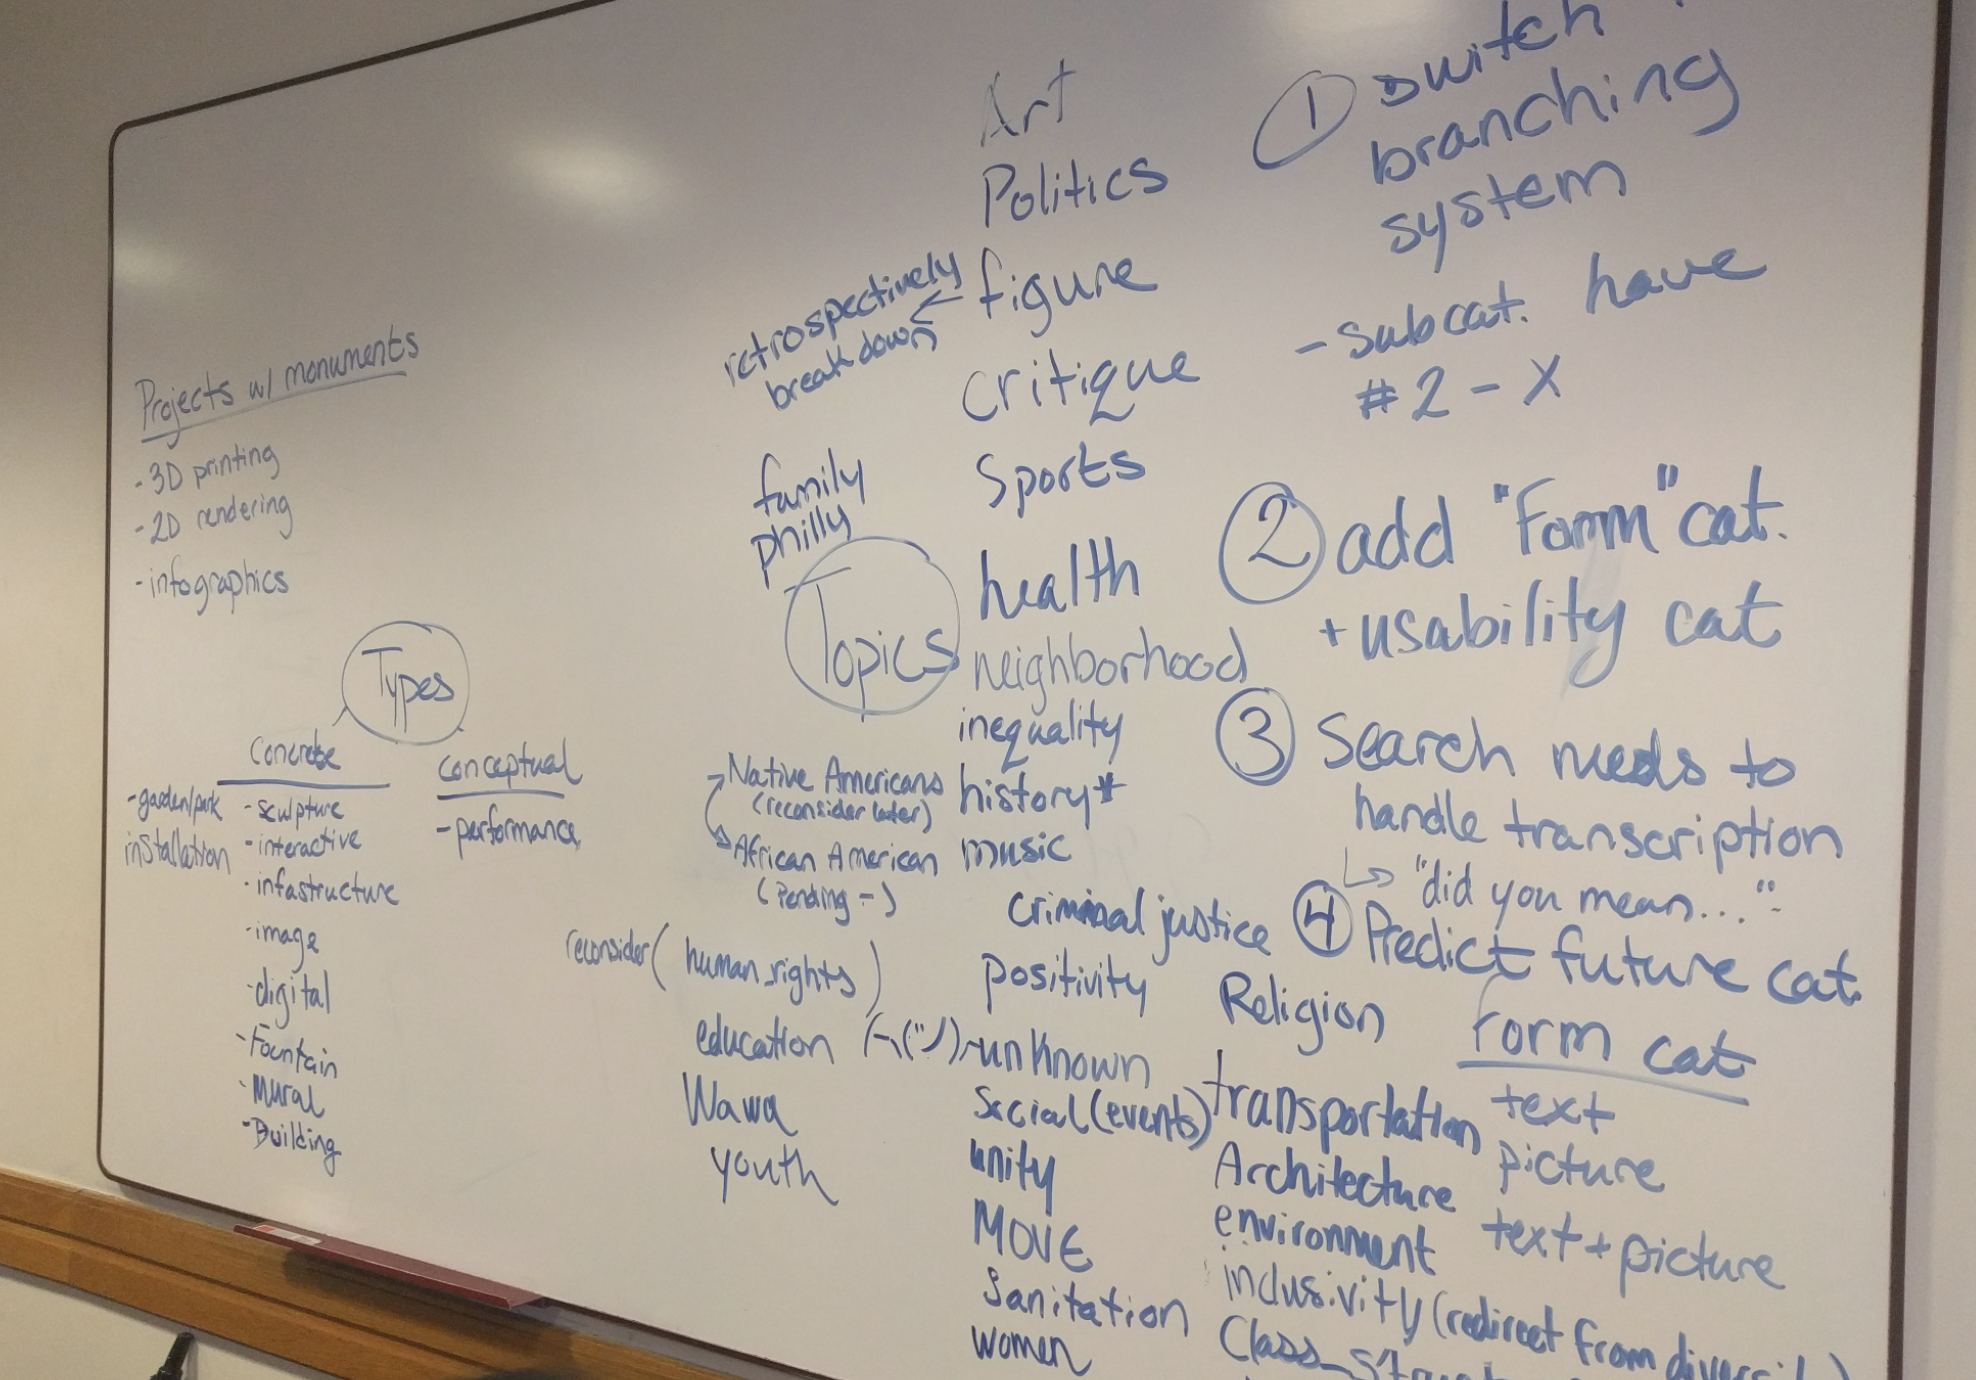 Projects w/ monuments
- 3D printing
- 2D rendering
- infographics
Types
Concrete
- garden/park
installation
- sculpture
- interactive
- infastructure
- image
- digital
- Fountain
- Mural
- Building
conceptual
- performance
retrospectively
break down
family
philly
Topics
Native Americans
(reconsider later)
African American
(Pending -)
reconsider (human_rights)
education
Wawa
youth
Art
Politics
figure
critique
Sports
health
neighborhood
inequality
history*
music
criminal justice
positivity
unknown
Social (events)
unity
MOVE
Sanitation
women
Religion
transportation
Architecture
environment
inclusivity (redirect from
Class_
1 switch
branching
system
- subcat. have
#2 - X
2 add "Form" cat.
+ usability cat
3 Search needs to
handle transcription
"did you mean..."
4 Predict future cat.
Form cat
text
picture
text + picture